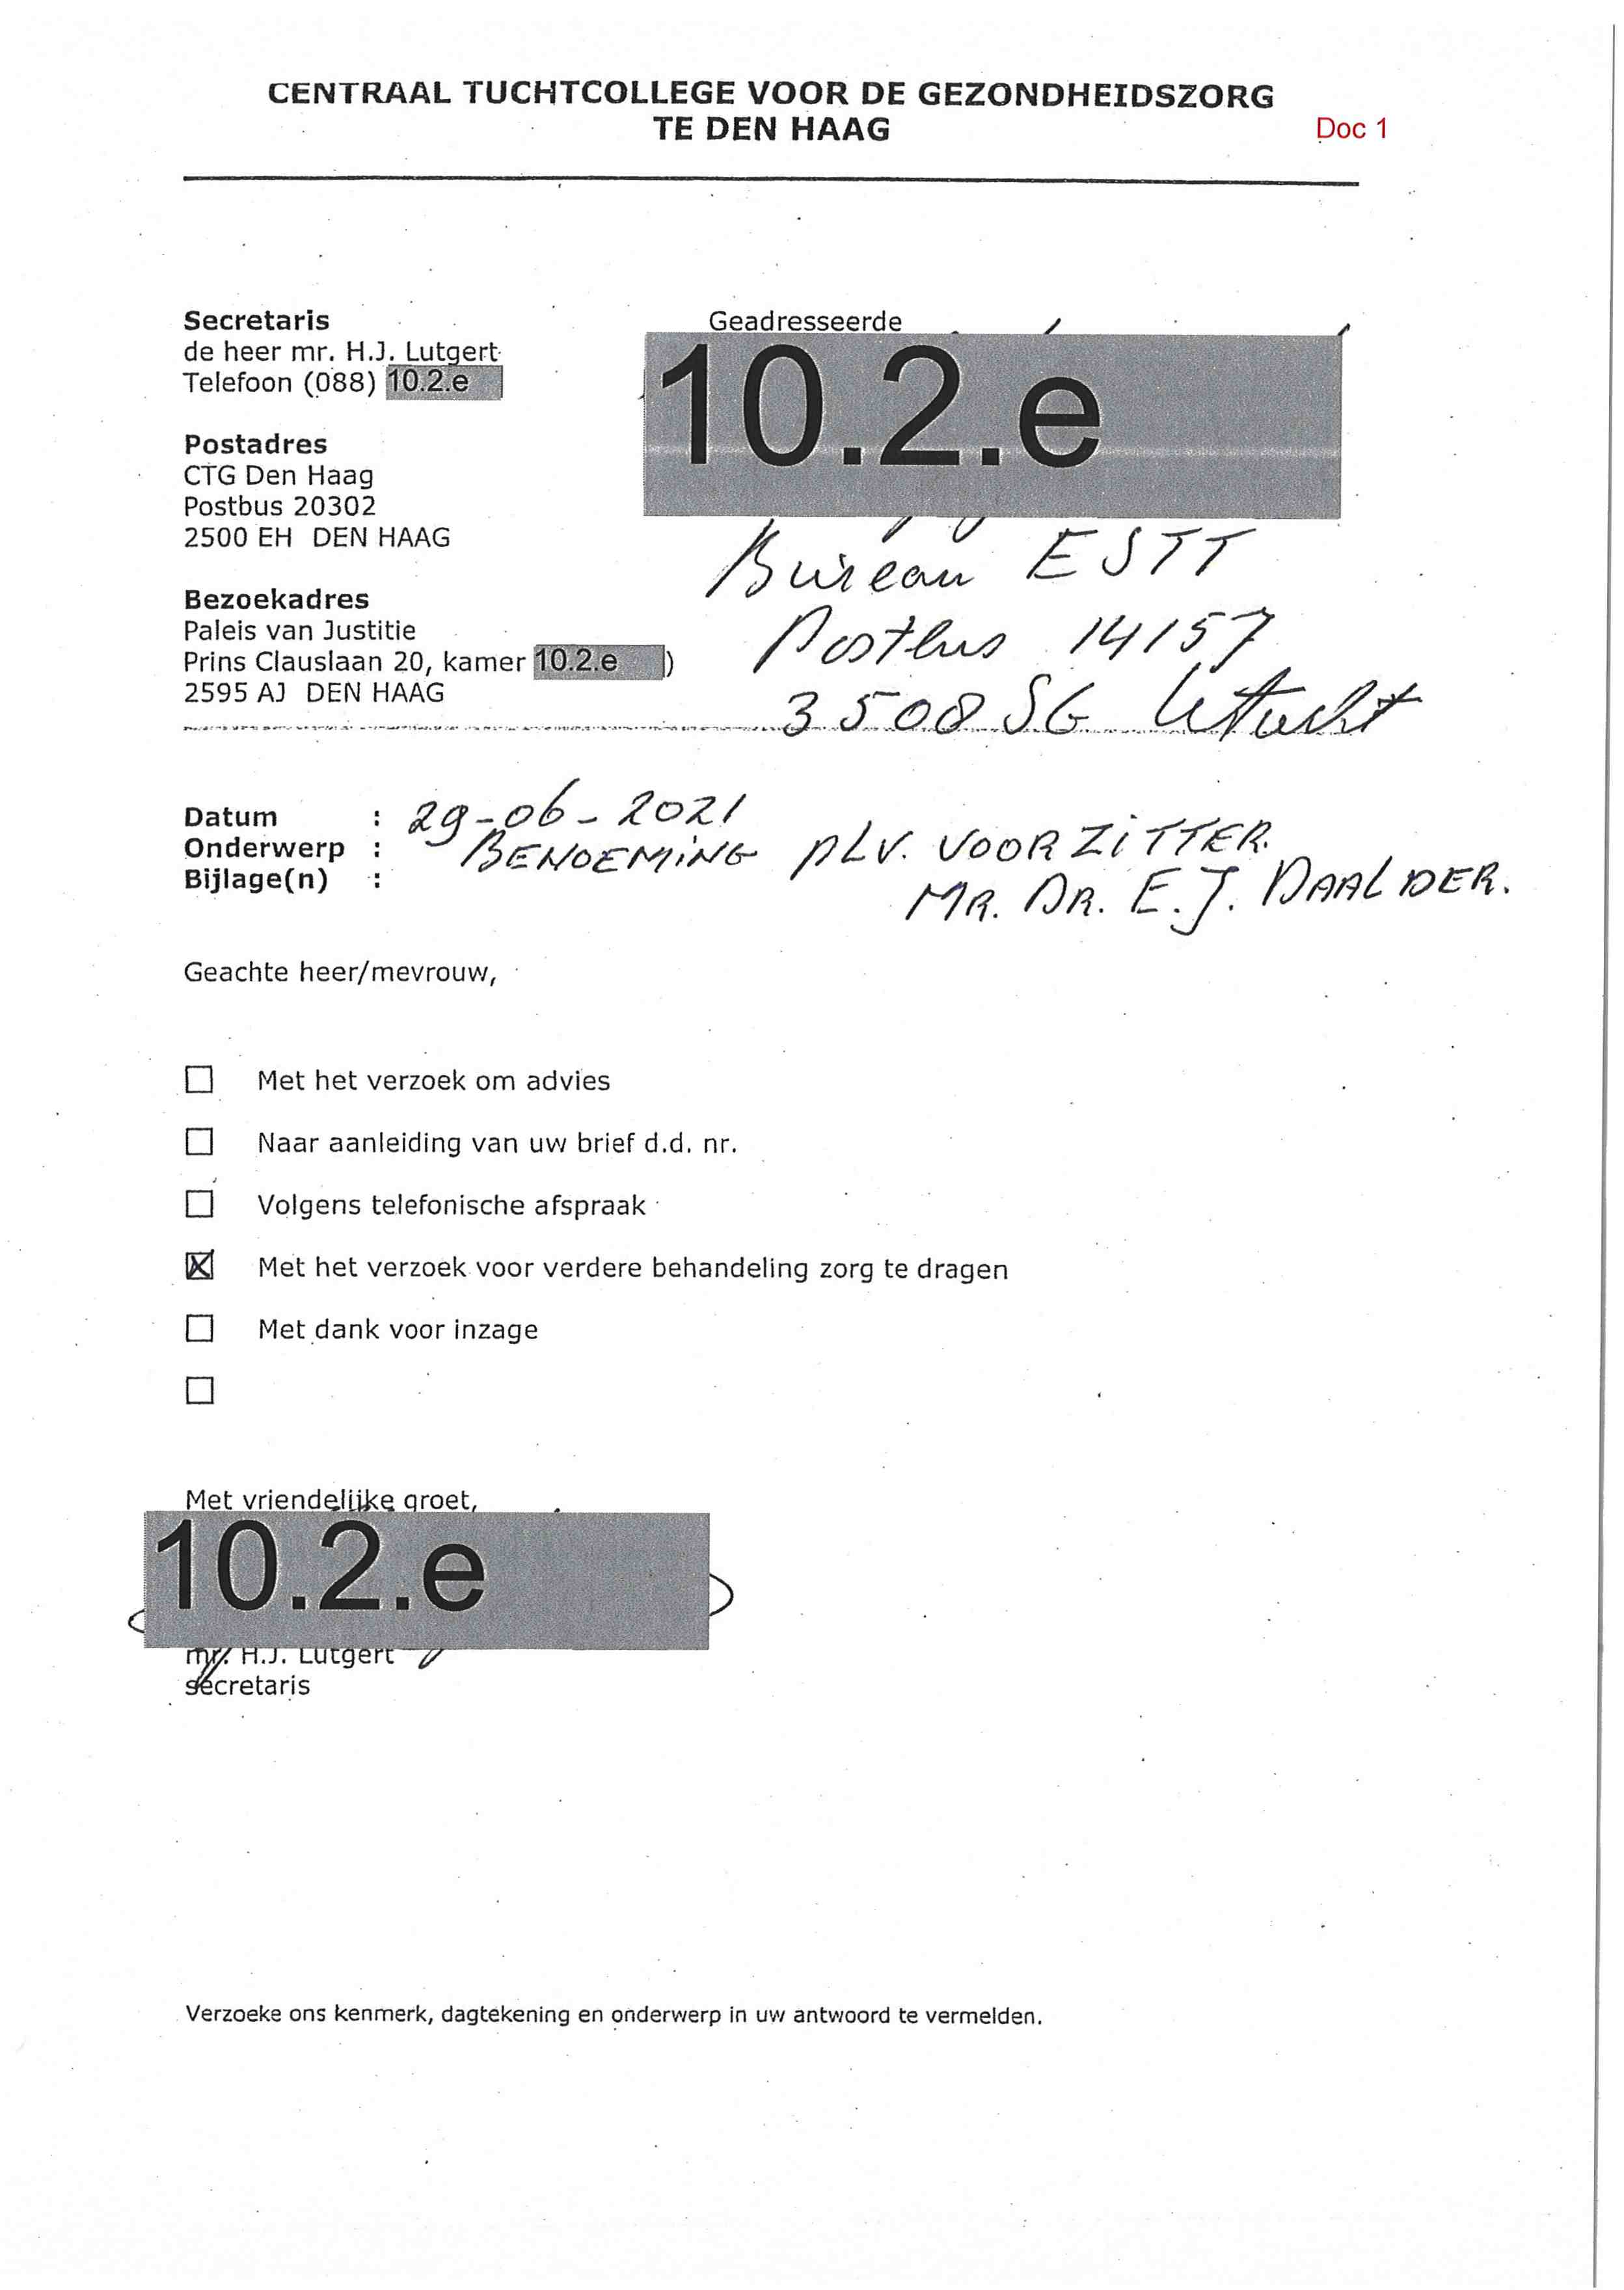 CENTRAAL TUCHTCOLLEGE VOOR DE GEZONDHEIDSZORG
TE DEN HAAG
Doc 1
Secretaris
de heer mr. H.J. Lutgert
Telefoon (088) 10.2.e
Postadres
CTG Den Haag
Postbus 20302
2500 EH DEN HAAG
Bezoekadres
Paleis van Justitie
Prins Clauslaan 20, kamer 10.2.e )
2595 AJ DEN HAAG
Geadresseerde
10.2.e
Bureau ESTT
Postbus 14157
3508 SG Utrecht
Datum : 29-06-2021
Onderwerp : BENOEMING PLV. VOORZITTER.
MR. DR. E.J. DAALDER.
Bijlage(n) :
Geachte heer/mevrouw,
Met het verzoek om advies
Naar aanleiding van uw brief d.d. nr.
Volgens telefonische afspraak
X Met het verzoek voor verdere behandeling zorg te dragen
Met dank voor inzage
Met vriendelijke groet,
10.2.e
mr. H.J. Lutgert
secretaris
Verzoeke ons kenmerk, dagtekening en onderwerp in uw antwoord te vermelden.